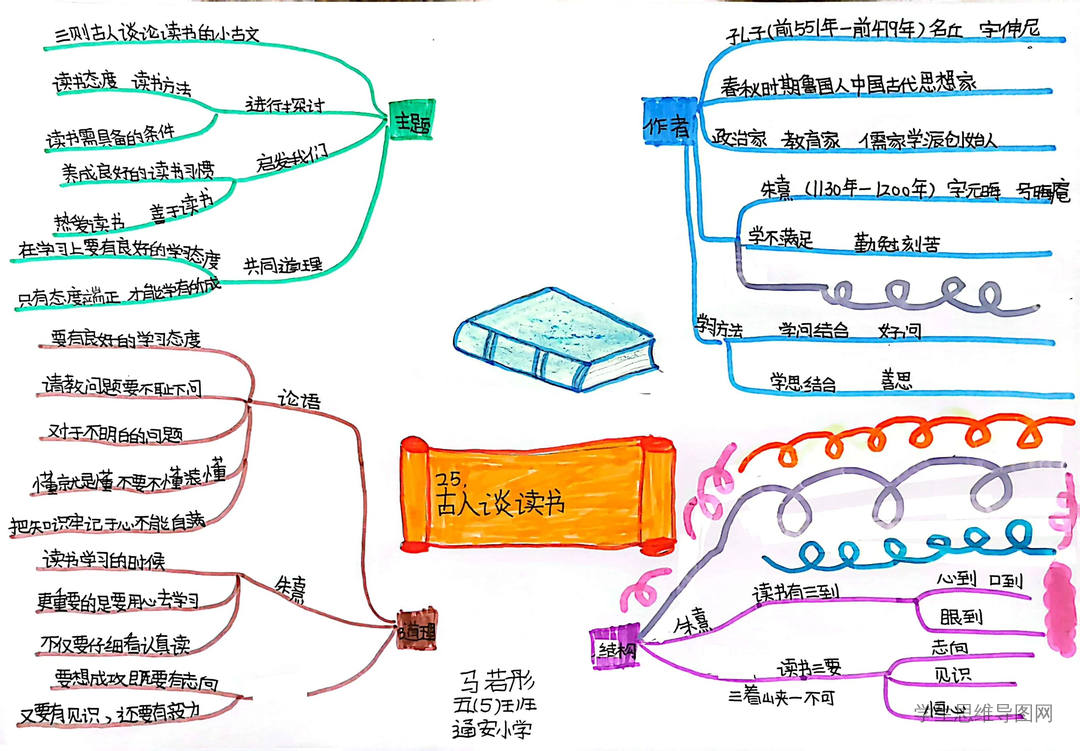 三则古人谈论读书的小古文
读书态度 读书方法
进行探讨
读书需具备的条件
主题
养成良好的读书习惯
启发我们
热爱读书 善于读书
在学习上要有良好的学习态度
共同道理
只有态度端正 才能学有所成
孔子(前551年-前479年)名丘 字仲尼
春秋时期鲁国人中国古代思想家
作者
政治家 教育家 儒家学派创始人
朱熹 (1130年-1200年) 字元晦 号晦庵
学不满足 勤勉刻苦
学习方法 学问结合 好问
学思结合 善思
25.
古人谈读书
要有良好的学习态度
请教问题要不耻下问
论语
对于不明白的问题
懂就是懂不要不懂装懂
把知识牢记于心不能自满
读书学习的时候
朱熹
更重要的是要用心去学习
道理
不仅要仔细看认真读
要想成功既要有志向
又要有见识,还要有毅力
结构
朱熹
读书有三到
心到 口到
眼到
读书三要
三着山夹一不可
志向
见识
恒心
马若彤
五(5)班
通安小学
学生思维导图网